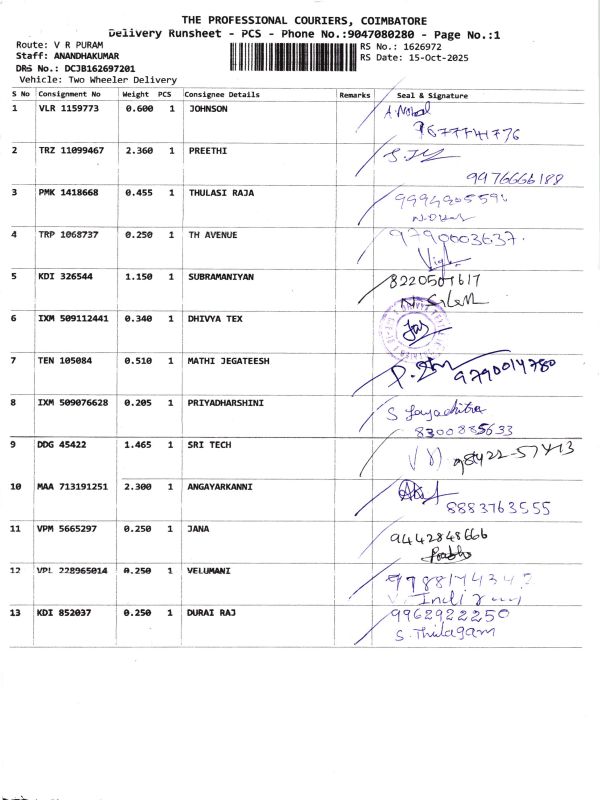 THE PROFESSIONAL COURIERS, COIMBATORE
Delivery Runsheet - PCS - Phone No.:9047080280 - Page No.:1
Route: V R PURAM
RS No.: 1626972
Staff: ANANDHAKUMAR
RS Date: 15-Oct-2025
DRS No.: DCJB162697201
Vehicle: Two Wheeler Delivery
S No Consignment No Weight PCS Consignee Details Remarks Seal & Signature
1 VLR 1159773 0.600 1 JOHNSON
9677741776
2 TRZ 11099467 2.360 1 PREETHI
9976666188
3 PMK 1418668 0.455 1 THULASI RAJA
4 TRP 1068737 0.250 1 TH AVENUE
9790003637.
5 KDI 326544 1.150 1 SUBRAMANIYAN
8220501617
6 IXM 509112441 0.340 1 DHIVYA TEX
7 TEN 105084 0.510 1 MATHI JEGATEESH
9790014780
8 IXM 509076628 0.205 1 PRIYADHARSHINI
S Jayachitra
8300885633
9 DDG 45422 1.465 1 SRI TECH
98422-57413
10 MAA 713191251 2.300 1 ANGAYARKANNI
8883763555
11 VPM 5665297 0.250 1 JANA
9442848666
12 VPL 228965014 0.250 1 VELUMANI
13 KDI 852037 0.250 1 DURAI RAJ
9962922250
S. Thilagam